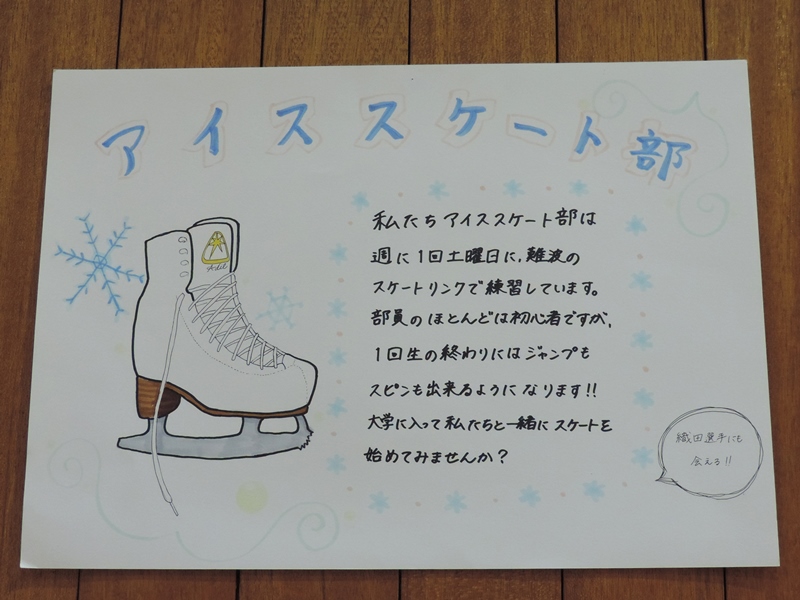 アイススケート部
私たちアイススケート部は
週に1回土曜日に、難波の
スケートリンクで練習しています。
部員のほとんどは初心者ですが、
1回生の終わりにはジャンプも
スピンも出来るようになります!!
大学に入って私たちと一緒にスケートを
始めてみませんか?
織田選手にも
会える!!